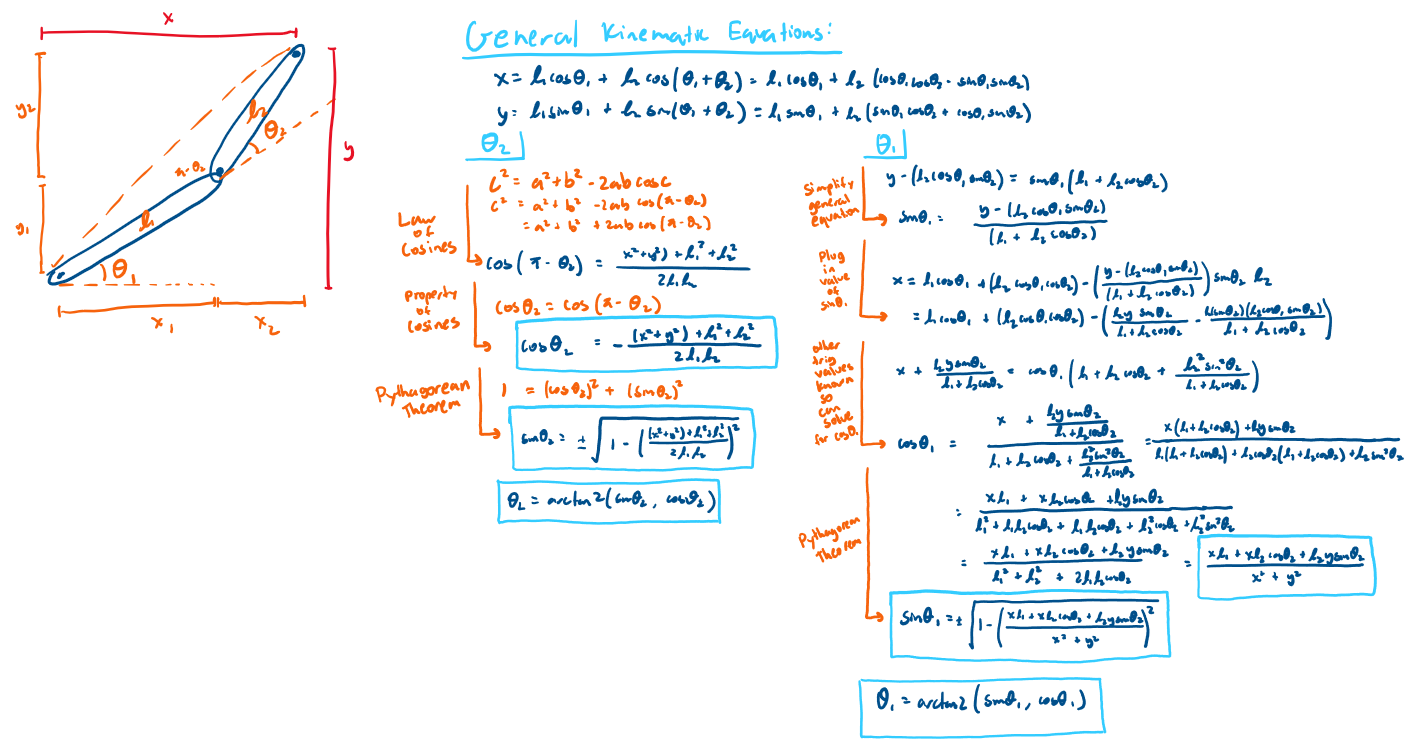 x
y₂
y₁
l₂
θ₂
π-θ₂
l₁
θ₁
y
x₁
x₂
General Kinematic Equations:
x = l₁cosθ₁ + l₂ cos(θ₁+θ₂) = l₁cosθ₁ + l₂ (cosθ₁cosθ₂ - sinθ₁sinθ₂)
y = l₁sinθ₁ + l₂ sin(θ₁+θ₂) = l₁sinθ₁ + l₂ (sinθ₁cosθ₂ + cosθ₁sinθ₂)
θ₂
Law
of
Cosines
c² = a²+b² - 2ab cosC
c² = a²+b² - 2ab cos(π-θ₂)
= a²+b² + 2ab cos(π-θ₂)
cos(π-θ₂) = ((x²+y²) + l₁² + l₂²) / (2l₁l₂)
Property
of
Cosines
cosθ₂ = cos(π-θ₂)
cosθ₂ = - ((x²+y²) + l₁² + l₂²) / (2l₁l₂)
Pythagorean
Theorem
1 = (cosθ₂)² + (sinθ₂)²
sinθ₂ = ± √(1 - (((x²+y²) + l₁² + l₂²) / (2l₁l₂))²)
θ₂ = arctan2(sinθ₂, cosθ₂)
θ₁
Simplify
general
equation
y - (l₂cosθ₁sinθ₂) = sinθ₁(l₁ + l₂cosθ₂)
sinθ₁ = (y - (l₂cosθ₁sinθ₂)) / (l₁ + l₂cosθ₂)
Plug
in
value
of
sinθ₁
x = l₁cosθ₁ + (l₂cosθ₁cosθ₂) - ((y - (l₂cosθ₁sinθ₂)) / (l₁ + l₂cosθ₂)) sinθ₂ l₂
= l₁cosθ₁ + (l₂cosθ₁cosθ₂) - ((l₂y sinθ₂) / (l₁ + l₂cosθ₂) - (l₂(sinθ₂)(l₂cosθ₁sinθ₂)) / (l₁ + l₂cosθ₂))
other
trig
values
known
so
can
solve
for cosθ₁
x + (l₂y sinθ₂) / (l₁ + l₂cosθ₂) = cosθ₁ (l₁ + l₂cosθ₂ + (l₂²sin²θ₂) / (l₁ + l₂cosθ₂))
cosθ₁ = (x + (l₂y sinθ₂) / (l₁ + l₂cosθ₂)) / (l₁ + l₂cosθ₂ + (l₂²sin²θ₂) / (l₁ + l₂cosθ₂)) = (x(l₁ + l₂cosθ₂) + l₂y sinθ₂) / (l₁(l₁ + l₂cosθ₂) + l₂cosθ₂(l₁ + l₂cosθ₂) + l₂sin²θ₂)
= (xl₁ + xl₂cosθ₂ + l₂y sinθ₂) / (l₁² + l₁l₂cosθ₂ + l₁l₂cosθ₂ + l₂²cosθ₂ + l₂²sin²θ₂)
Pythagorean
Theorem
= (xl₁ + xl₂cosθ₂ + l₂y sinθ₂) / (l₁² + l₂² + 2l₁l₂cosθ₂) = (xl₁ + xl₂cosθ₂ + l₂y sinθ₂) / (x² + y²)
sinθ₁ = ± √(1 - ((xl₁ + xl₂cosθ₂ + l₂y sinθ₂) / (x² + y²))²)
θ₁ = arctan2(sinθ₁, cosθ₁)